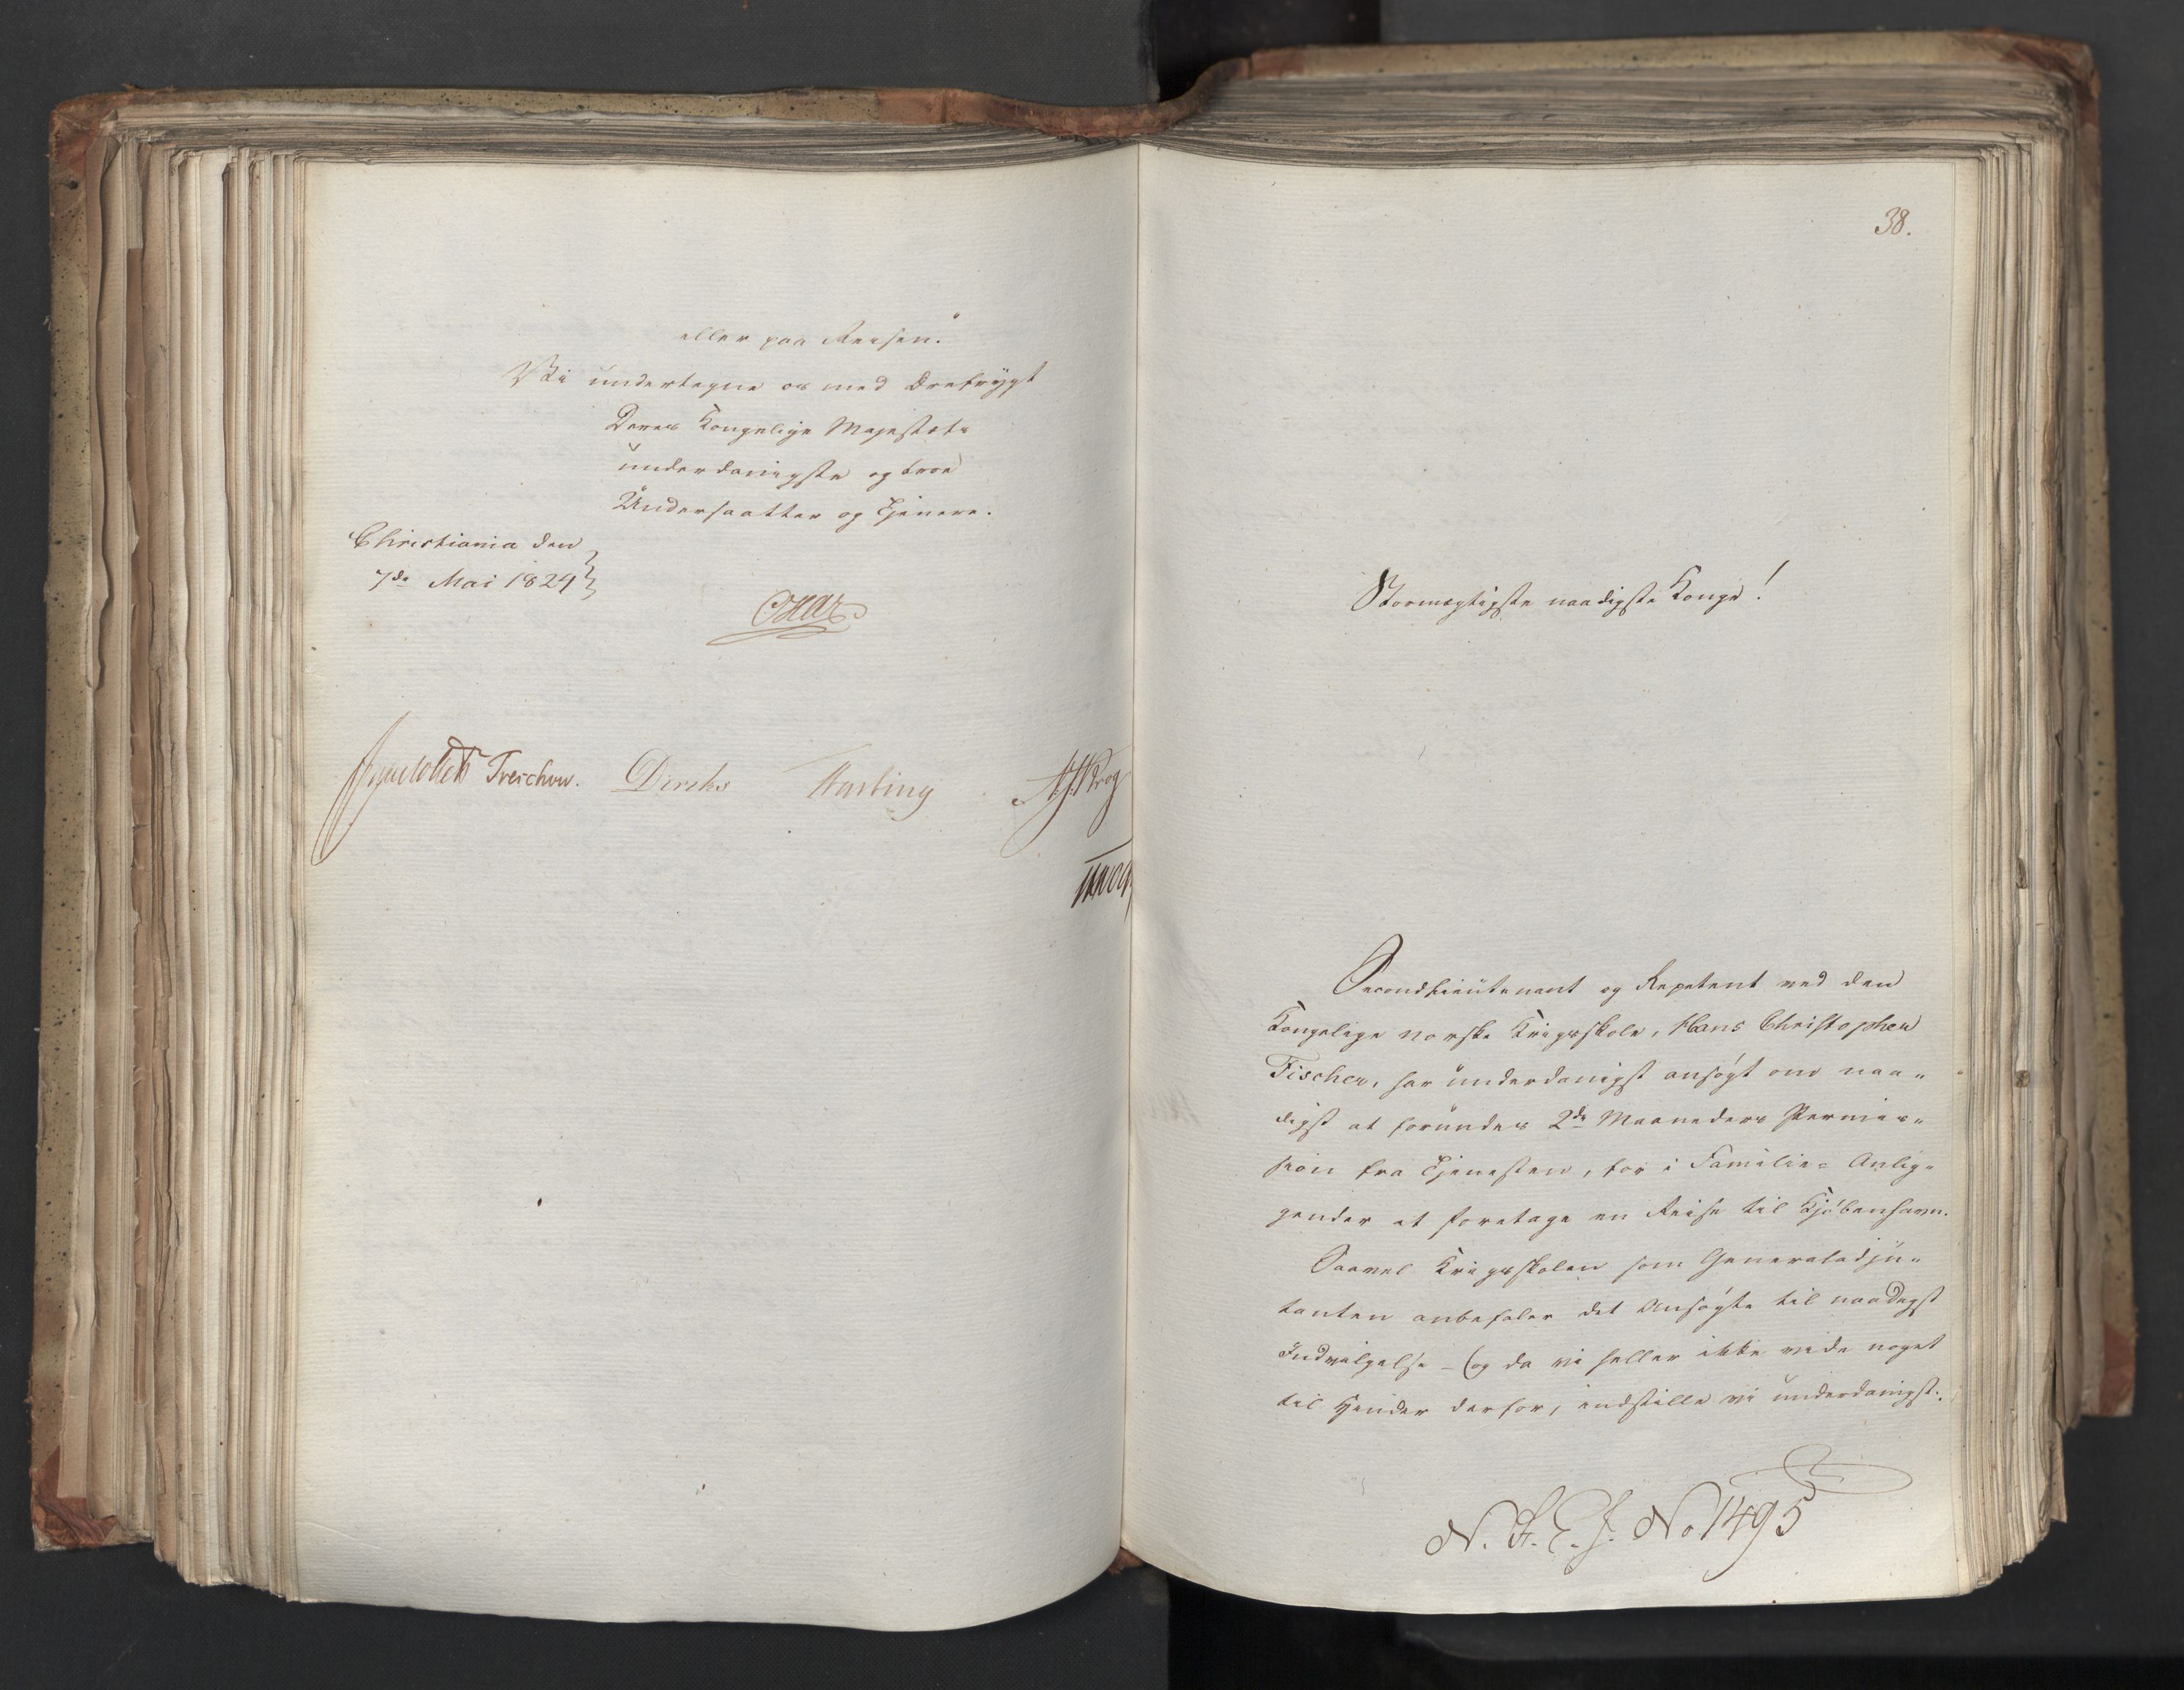 eller paa Reisen."
Vi undertegne os med Ærefrygt
Deres Kongelige Majestæts
underdanigste og troe
Undersaatter og Tjenere.
Christiania den
7de Mai 1824
Treschow. Diriks Fasting
38.
Stormægtigste naadigste Konge!
Secondlieutenant og Repetent ved den
Kongelige norske Krigsskole, Hans Christopher
Fischer, har underdanigst ansøgt om naa-
digst at forundes 2de Maaneders Permis-
sion fra Tjenesten, for i Familie- Anlig-
gender at foretage en Reise til Kjøbenhavn.
Saavel Krigsskolen som Generaladju-
tanten anbefaler det Ansøgte til naadigst
Indvilgelse - og da vi heller ikke vide noget
til Hinder derfor, indstille vi underdanigst:
No 1495